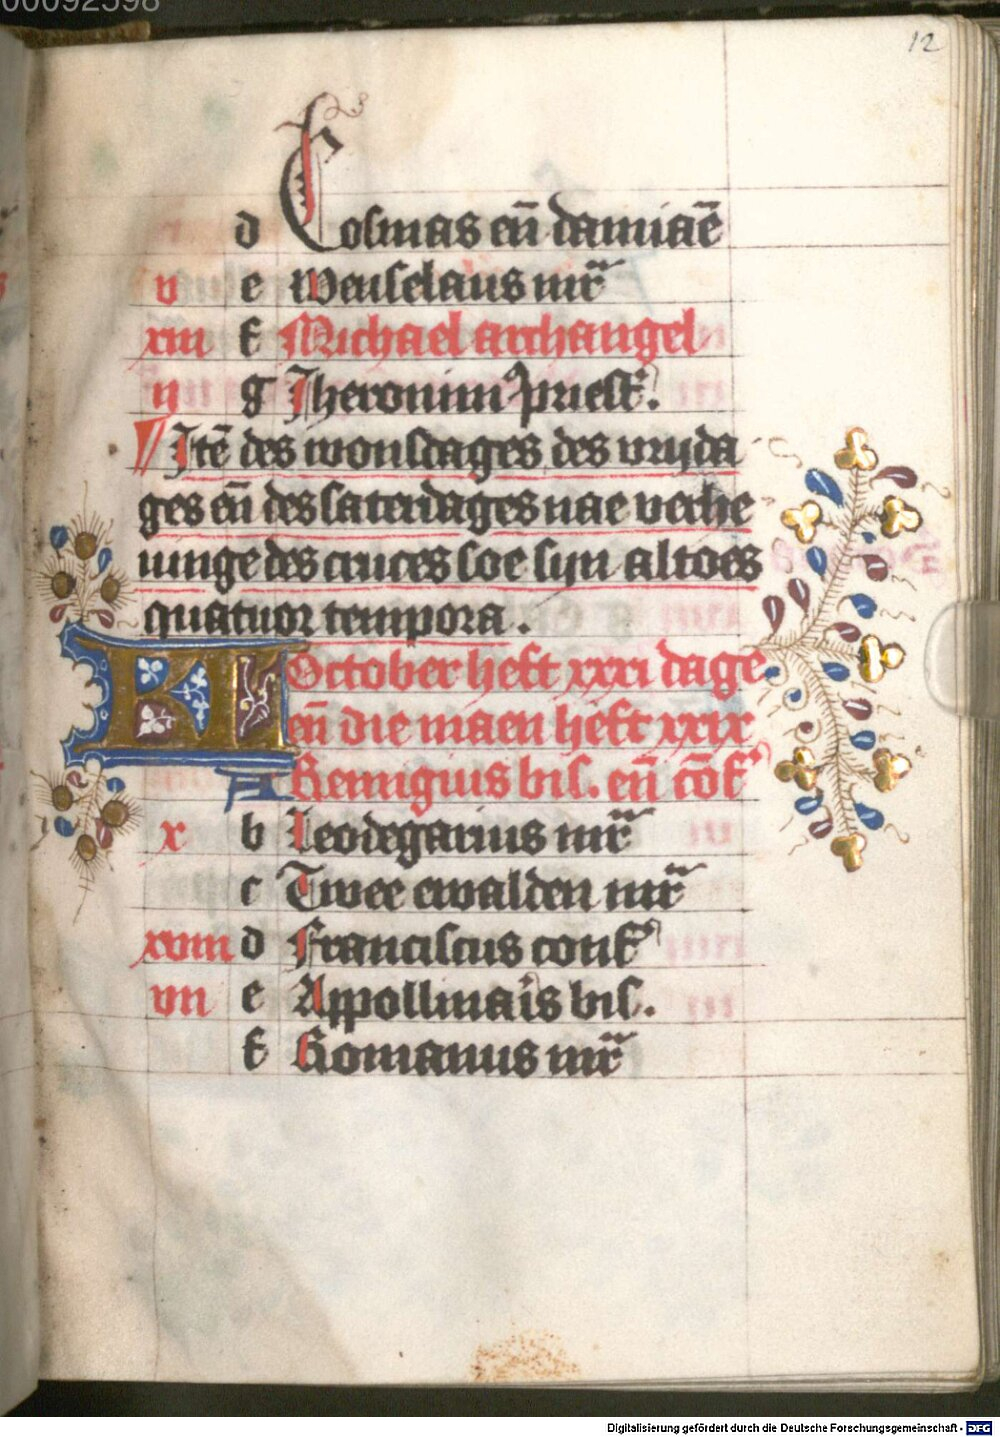 00092598
12
d Cosmas eñ damiaē
v e Wenselaus mr̄
xiii f Michael archangel
ii g Jheronim⁹ priest̄.
Itē des wonsdages des vrijda
ges eñ des saterdages nae verhe
uinge des cruces soe sijn altoes
quatuor tempora.
KL October heft xxxi dage
eñ die maen heft xxix
A Remigius bis. eñ cōf
x b Leodegarius mr̄
c Twee ewalden mr̄
xviii d Franciscus conf
vii e Appollinaīs bis.
f Romanus mr̄
Digitalisierung gefördert durch die Deutsche Forschungsgemeinschaft - DFG